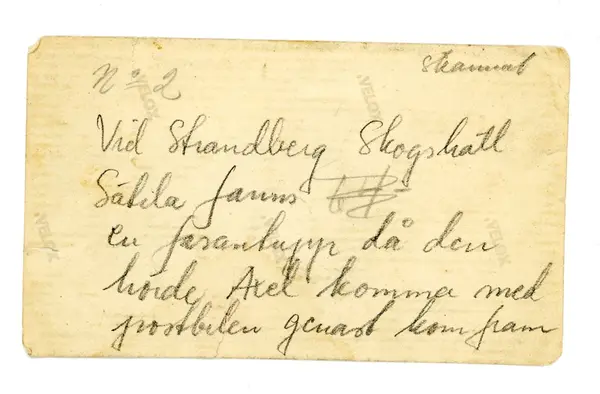 No 2
skannat
Vid Strandberg Skogshäll
Sätila fanns
en fasantupp då den
hörde Axel komma med
postbilen genast kom fram
VELOX
VELOX
VELOX
VELOX